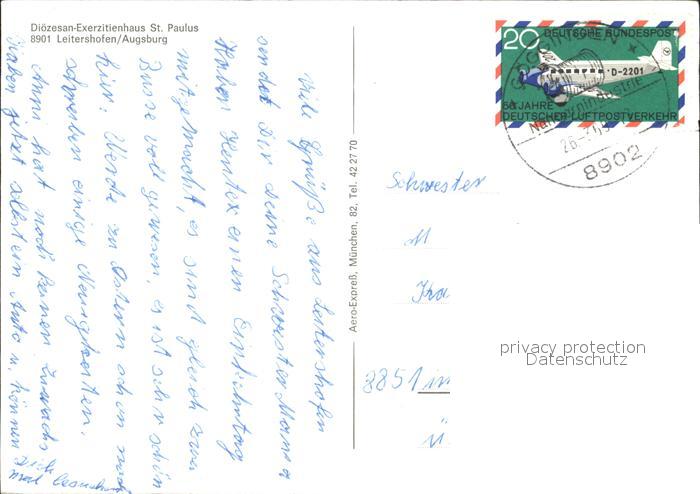 Diözesan-Exerzitienhaus St. Paulus
8901 Leitershofen/Augsburg
Viele Grüße aus Leitershofen
sendet Dir Deine Schwester
Haben heute einen Einkehrtag
mitgemacht, es sind gleich zwei
Busse voll gewesen, es ist sehr schön
hier. Werde zu Ostern schon noch
schreiben einige Neuigkeiten.
Anni hat noch keinen Zuwachs
Haben jetzt selbst ein Auto u. können
Dich
mal besuchen
Aero-Expreß, München, 82, Tel. 42 27 70
20 DEUTSCHE BUNDESPOST
D-2201
50 JAHRE
DEUTSCHER LUFTPOSTVERKEHR
8902
Schwester
M
8851 in
ü.
privacy protection
Datenschutz